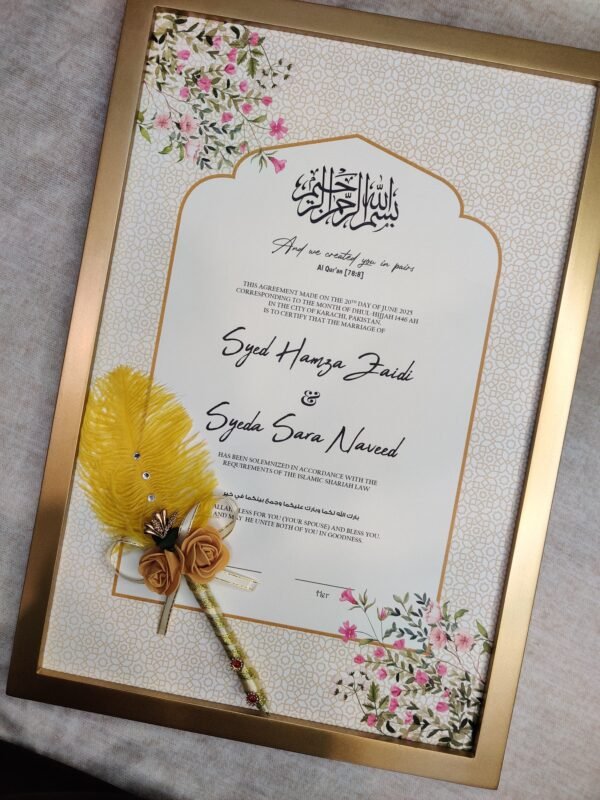 بسم الله الرحمن الرحيم
And we created you in pairs
Al Qur'an [78:8]
THIS AGREEMENT MADE ON THE 20TH DAY OF JUNE 2025
CORRESPONDING TO THE MONTH OF DHUL-HIJJAH 1446 AH
IN THE CITY OF KARACHI, PAKISTAN.
IS TO CERTIFY THAT THE MARRIAGE OF
Syed Hamza Zaidi
&
Syeda Sara Naveed
HAS BEEN SOLEMNIZED IN ACCORDANCE WITH THE
REQUIREMENTS OF THE ISLAMIC SHARIAH LAW
بارك الله لكما وبارك عليكما وجمع بينكما في خير
ALLAH BLESS FOR YOU (YOUR SPOUSE) AND BLESS YOU.
AND MAY HE UNITE BOTH OF YOU IN GOODNESS.
Her